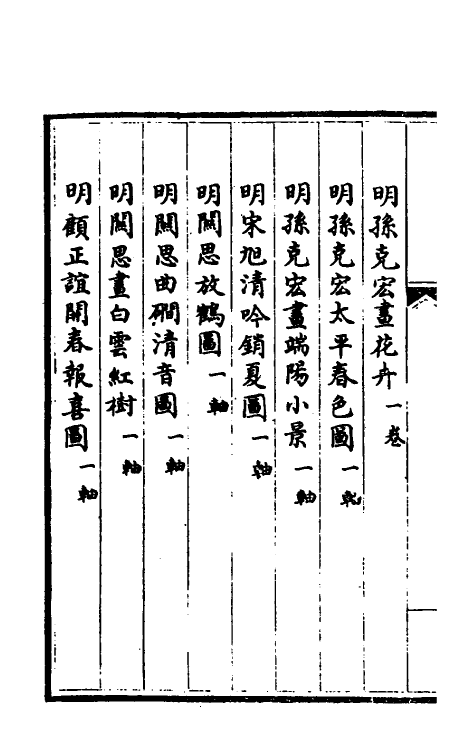 明孫克宏畫花卉一卷
明孫克宏太平春色圖一軸
明孫克宏畫端陽小景一軸
明宋旭清吟銷夏圖一軸
明關思放鶴圖一軸
明關思曲磵清音圖一軸
明關思畫白雲紅樹一軸
明顧正誼開春報喜圖一軸